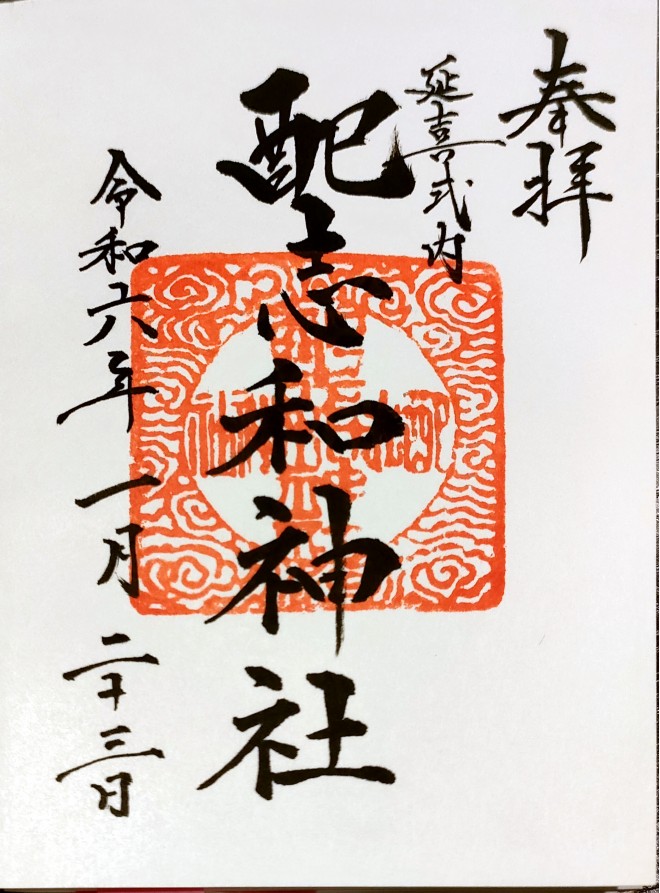 奉拝
延喜式内
配志和神社
令和六年一月二十三日